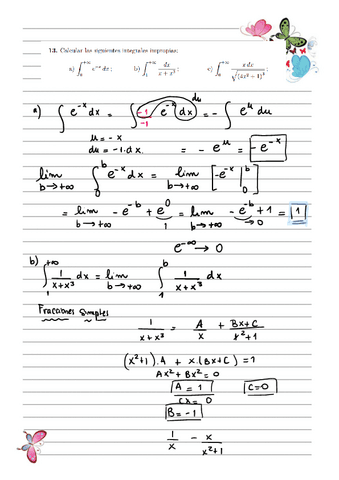 13. Calcular las siguientes integrales impropias:
a) ∫₀^{+∞} e^{-x} dx; b) ∫₁^{+∞} dx/(x + x³); c) ∫₀^{+∞} x dx/√((4x² + 1)³)
a) ∫ e^{-x} dx = ∫ (-1)/(-1) e^{-x} dx = - ∫ e^{u} du
du
u = -x
du = -1·dx. = - e^{u} = - e^{-x}
lim_{b→+∞} ∫₀^{b} e^{-x} dx = lim_{b→+∞} [-e^{-x} |₀^{b}
= lim_{b→+∞} - e^{-b} + e^{0} = lim_{b→+∞} - e^{-b} + 1 = 1
1 →0
e^{-∞} → 0
b) ∫₁^{+∞} 1/(x+x³) dx = lim_{b→+∞} ∫₁^{b} 1/(x+x³) dx
Fracciones simples
1/(x+x³) = A/x + (Bx+C)/(x²+1)
(x²+1)·A + x·(Bx+C) = 1
Ax² + Bx² = 0
A = 1 C = 0
Cx = 0
B = -1
1/x - x/(x²+1)